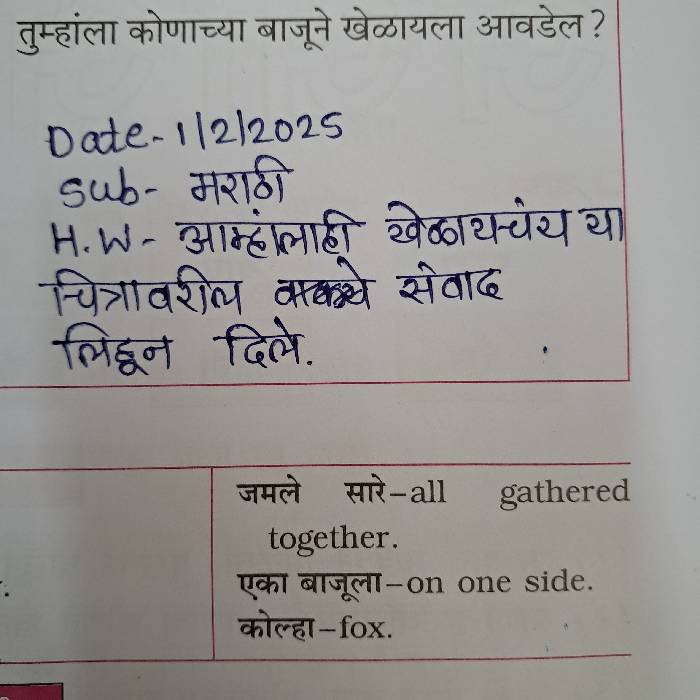 तुम्हांला कोणाच्या बाजूने खेळायला आवडेल ?
Date - 1/2/2025
Sub - मराठी
H.W - आम्हांलाही खेळायचंय या
चित्रावरील वाक्ये संवाद
लिहून दिले.
जमले सारे–all gathered
together.
एका बाजूला–on one side.
कोल्हा–fox.